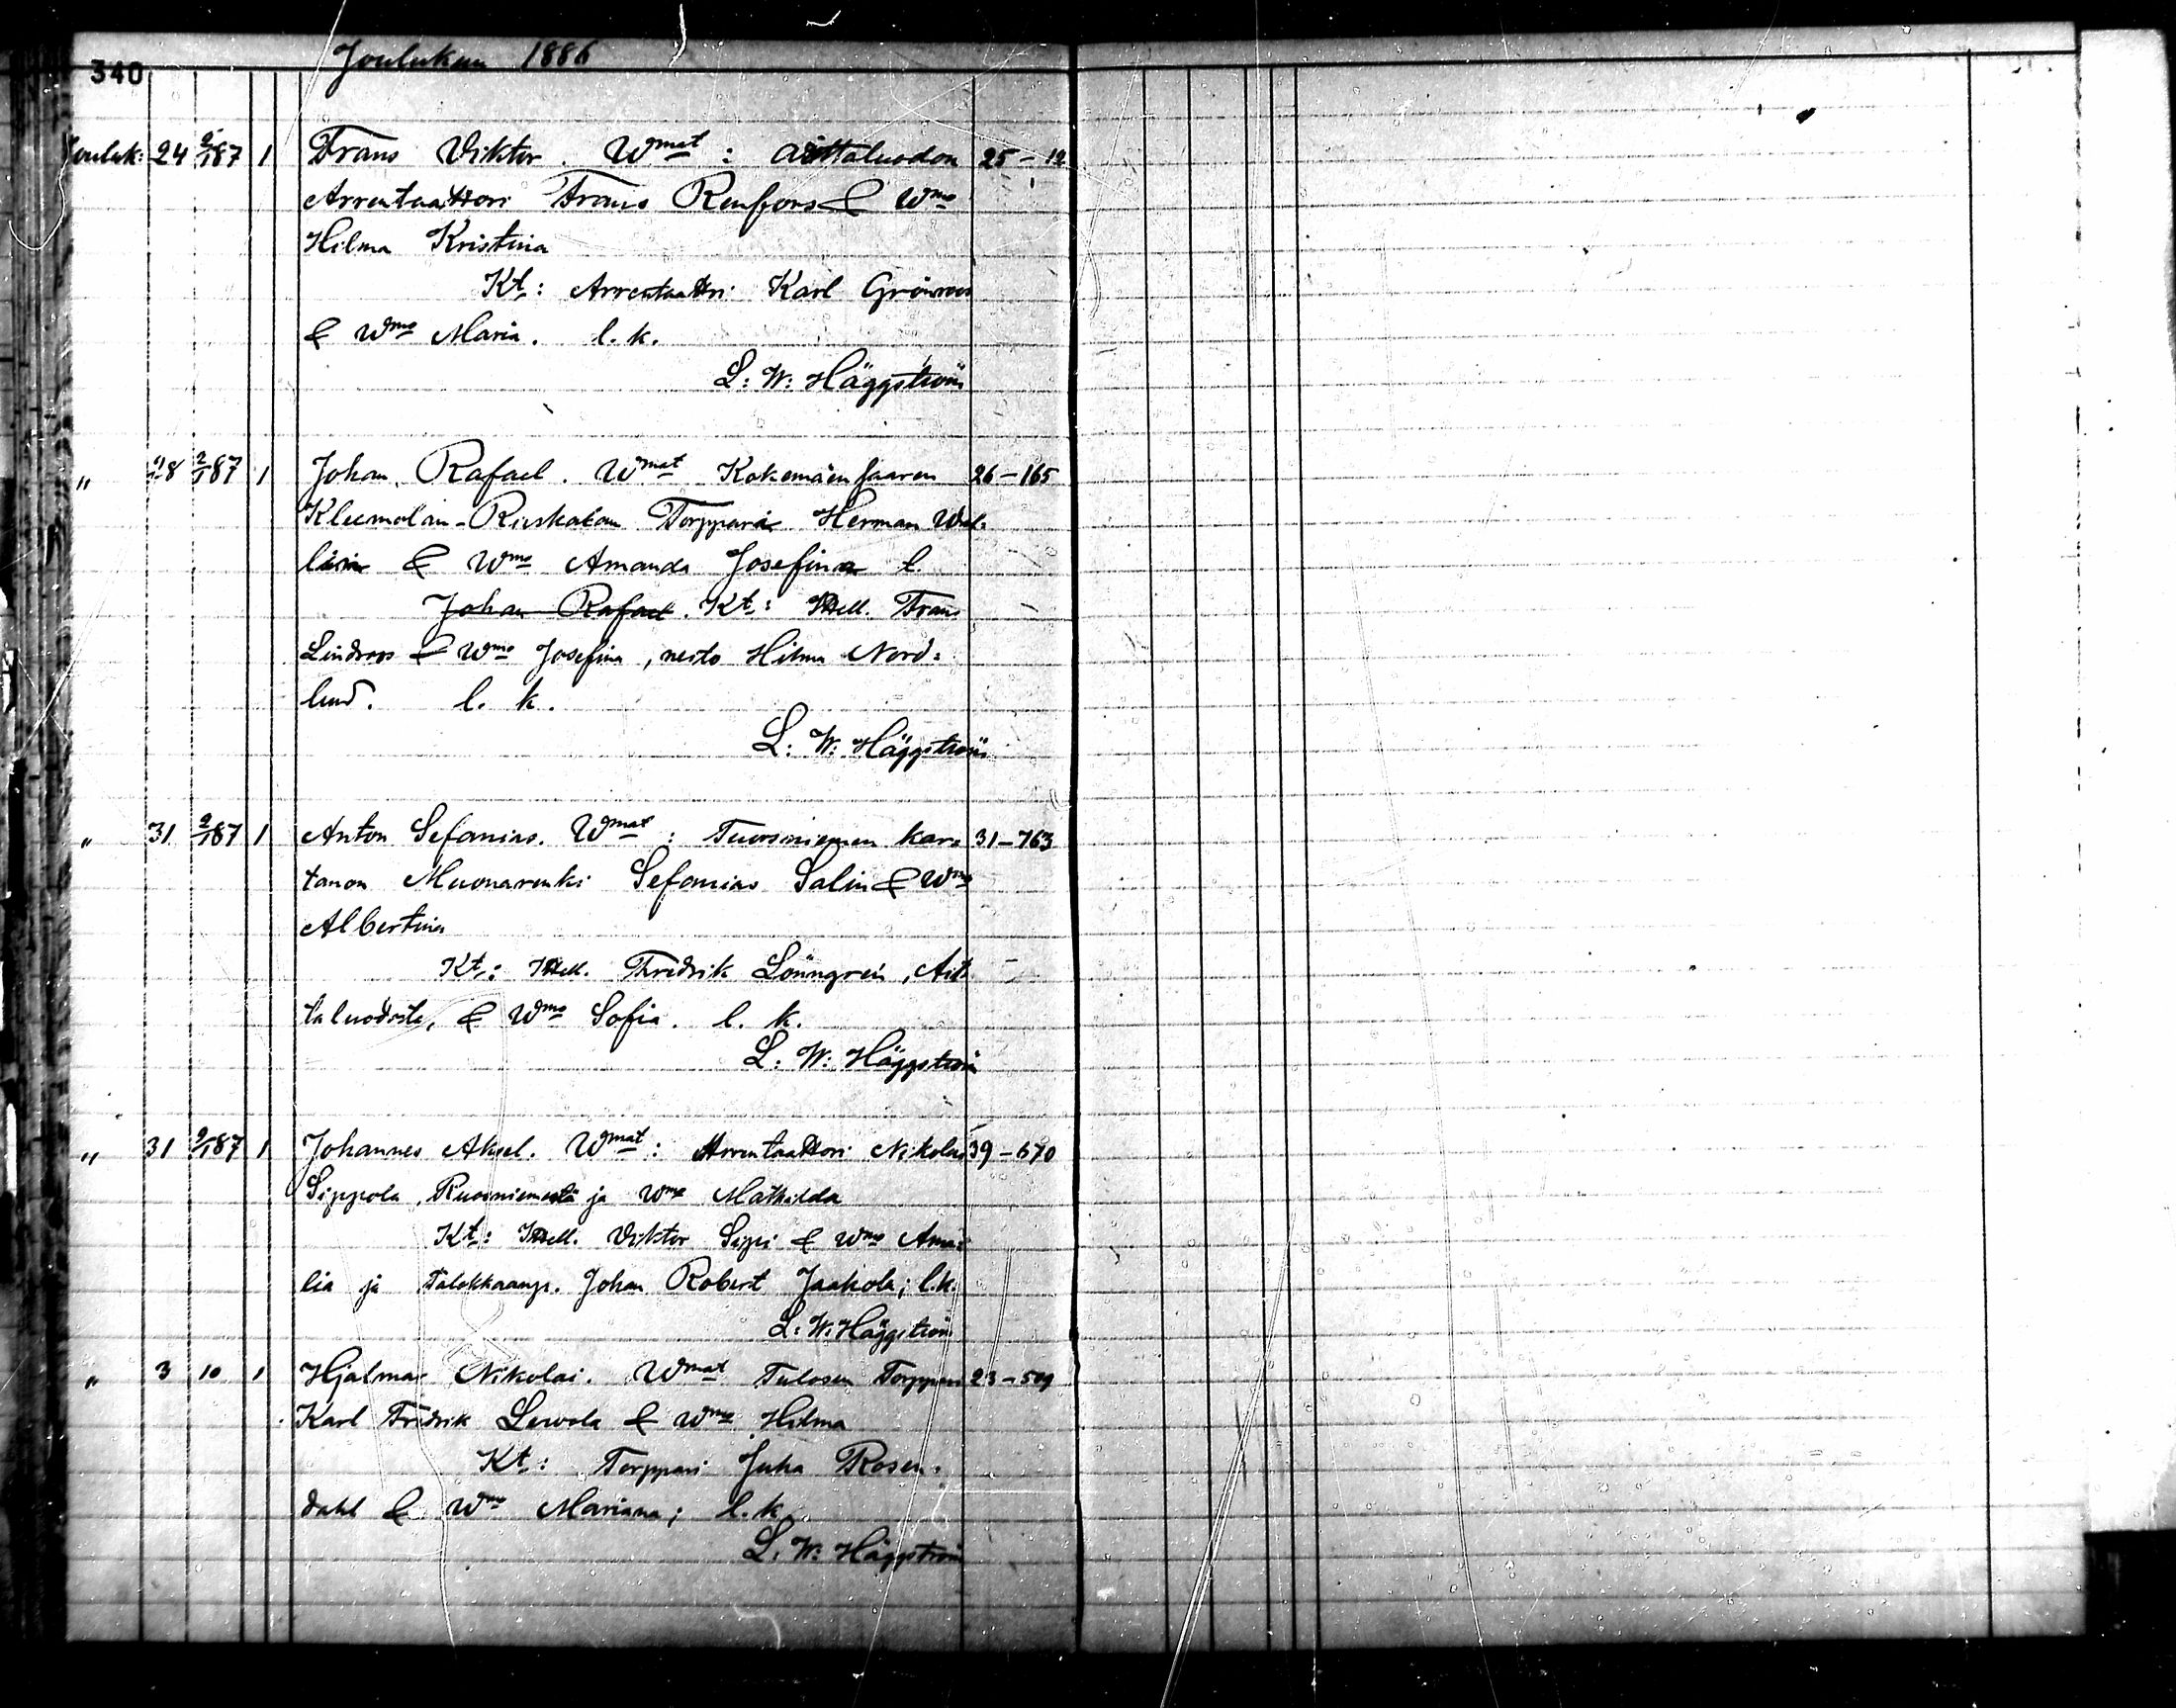 340
Joulukuu 1886
Jouluk: 24 2/1 87 1 Frans Viktor. Wmat: Aittaluodon 25-12
Arrentaattori Frans Renfors & Wmo
Hilma Kristina
Kt: Arrentaattri Karl Grönroos
& Wmo Maria. l. k.
L: W: Häggström
" 28 2/1 87 1 Johan Rafael. Wmat Kokemäensaaren 26-165
Kleemolan- Torppari Herman
& Wmo Amanda Josefina
Johan Rafael. Kt: Itsell. Frans
Lindroos & Wmo Josefina, neito Hilma Nord:
lund. l. k.
L: W: Häggström
" 31 2/1 87 1 Anton Sefanias. Wmat: Tuorsniemen kar: 31-763
tanon Muonarenki Sefanias Salin & Wmo
Albertina
Kt: Itsell. Fredrik Lönngren, Ait
taluodosta, & Wmo Sofia. l. k.
L: W: Häggström
" 31 2/1 87 1 Johannes Aksel. Wmat: Arrentaattori Nikolai 39-670
Sippola, Ruosniemestä ja Wmo Mathilda
Kt: Itsell. Viktor Sippi & Wmo Ama:
lia ja Talokkaanp. Johan Robert Jaakola; l.k.
L: W: Häggström
" 3 10 1 Hjalmar Nikolai. Wmat Tulosen Torppari 23-509
Karl Fredrik & Wmo Hilma
Kt: Torppari Juha Rosen:
dahl & Wmo Mariana; l. k.
L: W: Häggström